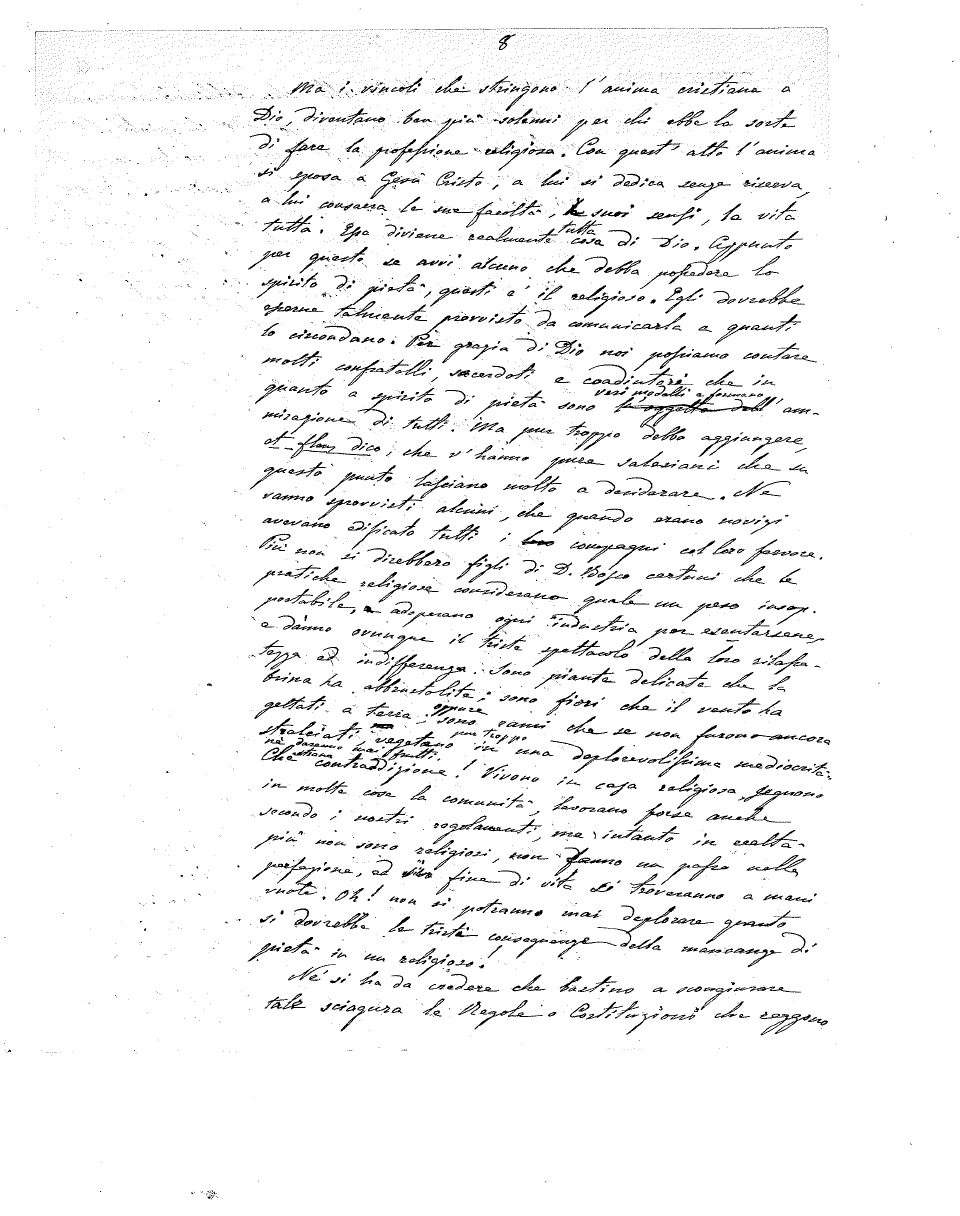 8
Ma i vincoli che stringono l'anima cristiana a
Dio, diventano ben più solenni per chi ebbe la sorte
di fare la professione religiosa. Con quest'atto l'anima
si sposa a Gesù Cristo, a lui si dedica senza riserva,
a lui consacra le sue facoltà, suoi sensi, la vita
tutta. Essa diviene realmente tutta cosa di Dio. Appunto
per questo se avvi alcuno che debba possedere lo
spirito di pietà, questi è il religioso. Egli dovrebbe
esserne talmente provvisto da comunicarla a quanti
lo circondano. Per grazia di Dio noi possiamo contare
molti confratelli, sacerdoti e coadiutori che in
quanto a spirito di pietà sono veri modelli e formano l'am-
mirazione di tutti. Ma pur troppo debbo aggiungere,
et flens dico, che v'hanno pure salesiani che su
questo punto lasciano molto a desiderare. Ne
vanno sprovvisti alcuni, che quando erano novizi
avevano edificato tutti i loro compagni col loro fervore.
Più non si direbbero figli di D. Bosco certuni che le
pratiche religiose considerano quale un peso insop-
portabile, adoperano ogni industria per esentarsene,
e dànno ovunque il triste spettacolo della loro rilassa-
tezza ed indifferenza. Sono piante delicate che la
brina ha abbrustolite; sono fiori che il vento ha
gettati a terra, oppure sono rami che se non furono ancora
stralciati vegetano pur troppo in una deplorevolissima mediocrità
nè daranno mai frutti.
Che strana contraddizione! Vivono in casa religiosa, seguono
in molte cose la comunità, lavorano forse anche
secondo i nostri regolamenti, ma intanto in realtà
più non sono religiosi, non fanno un passo nella
perfezione, ed in fine di vita si troveranno a mani
vuote. Oh! non si potranno mai deplorare quanto
si dovrebbe le tristi conseguenze della mancanza di
pietà in un religioso!
Nè si ha da credere che bastino a scongiurare
tale sciagura le Regole o Costituzioni che reggono